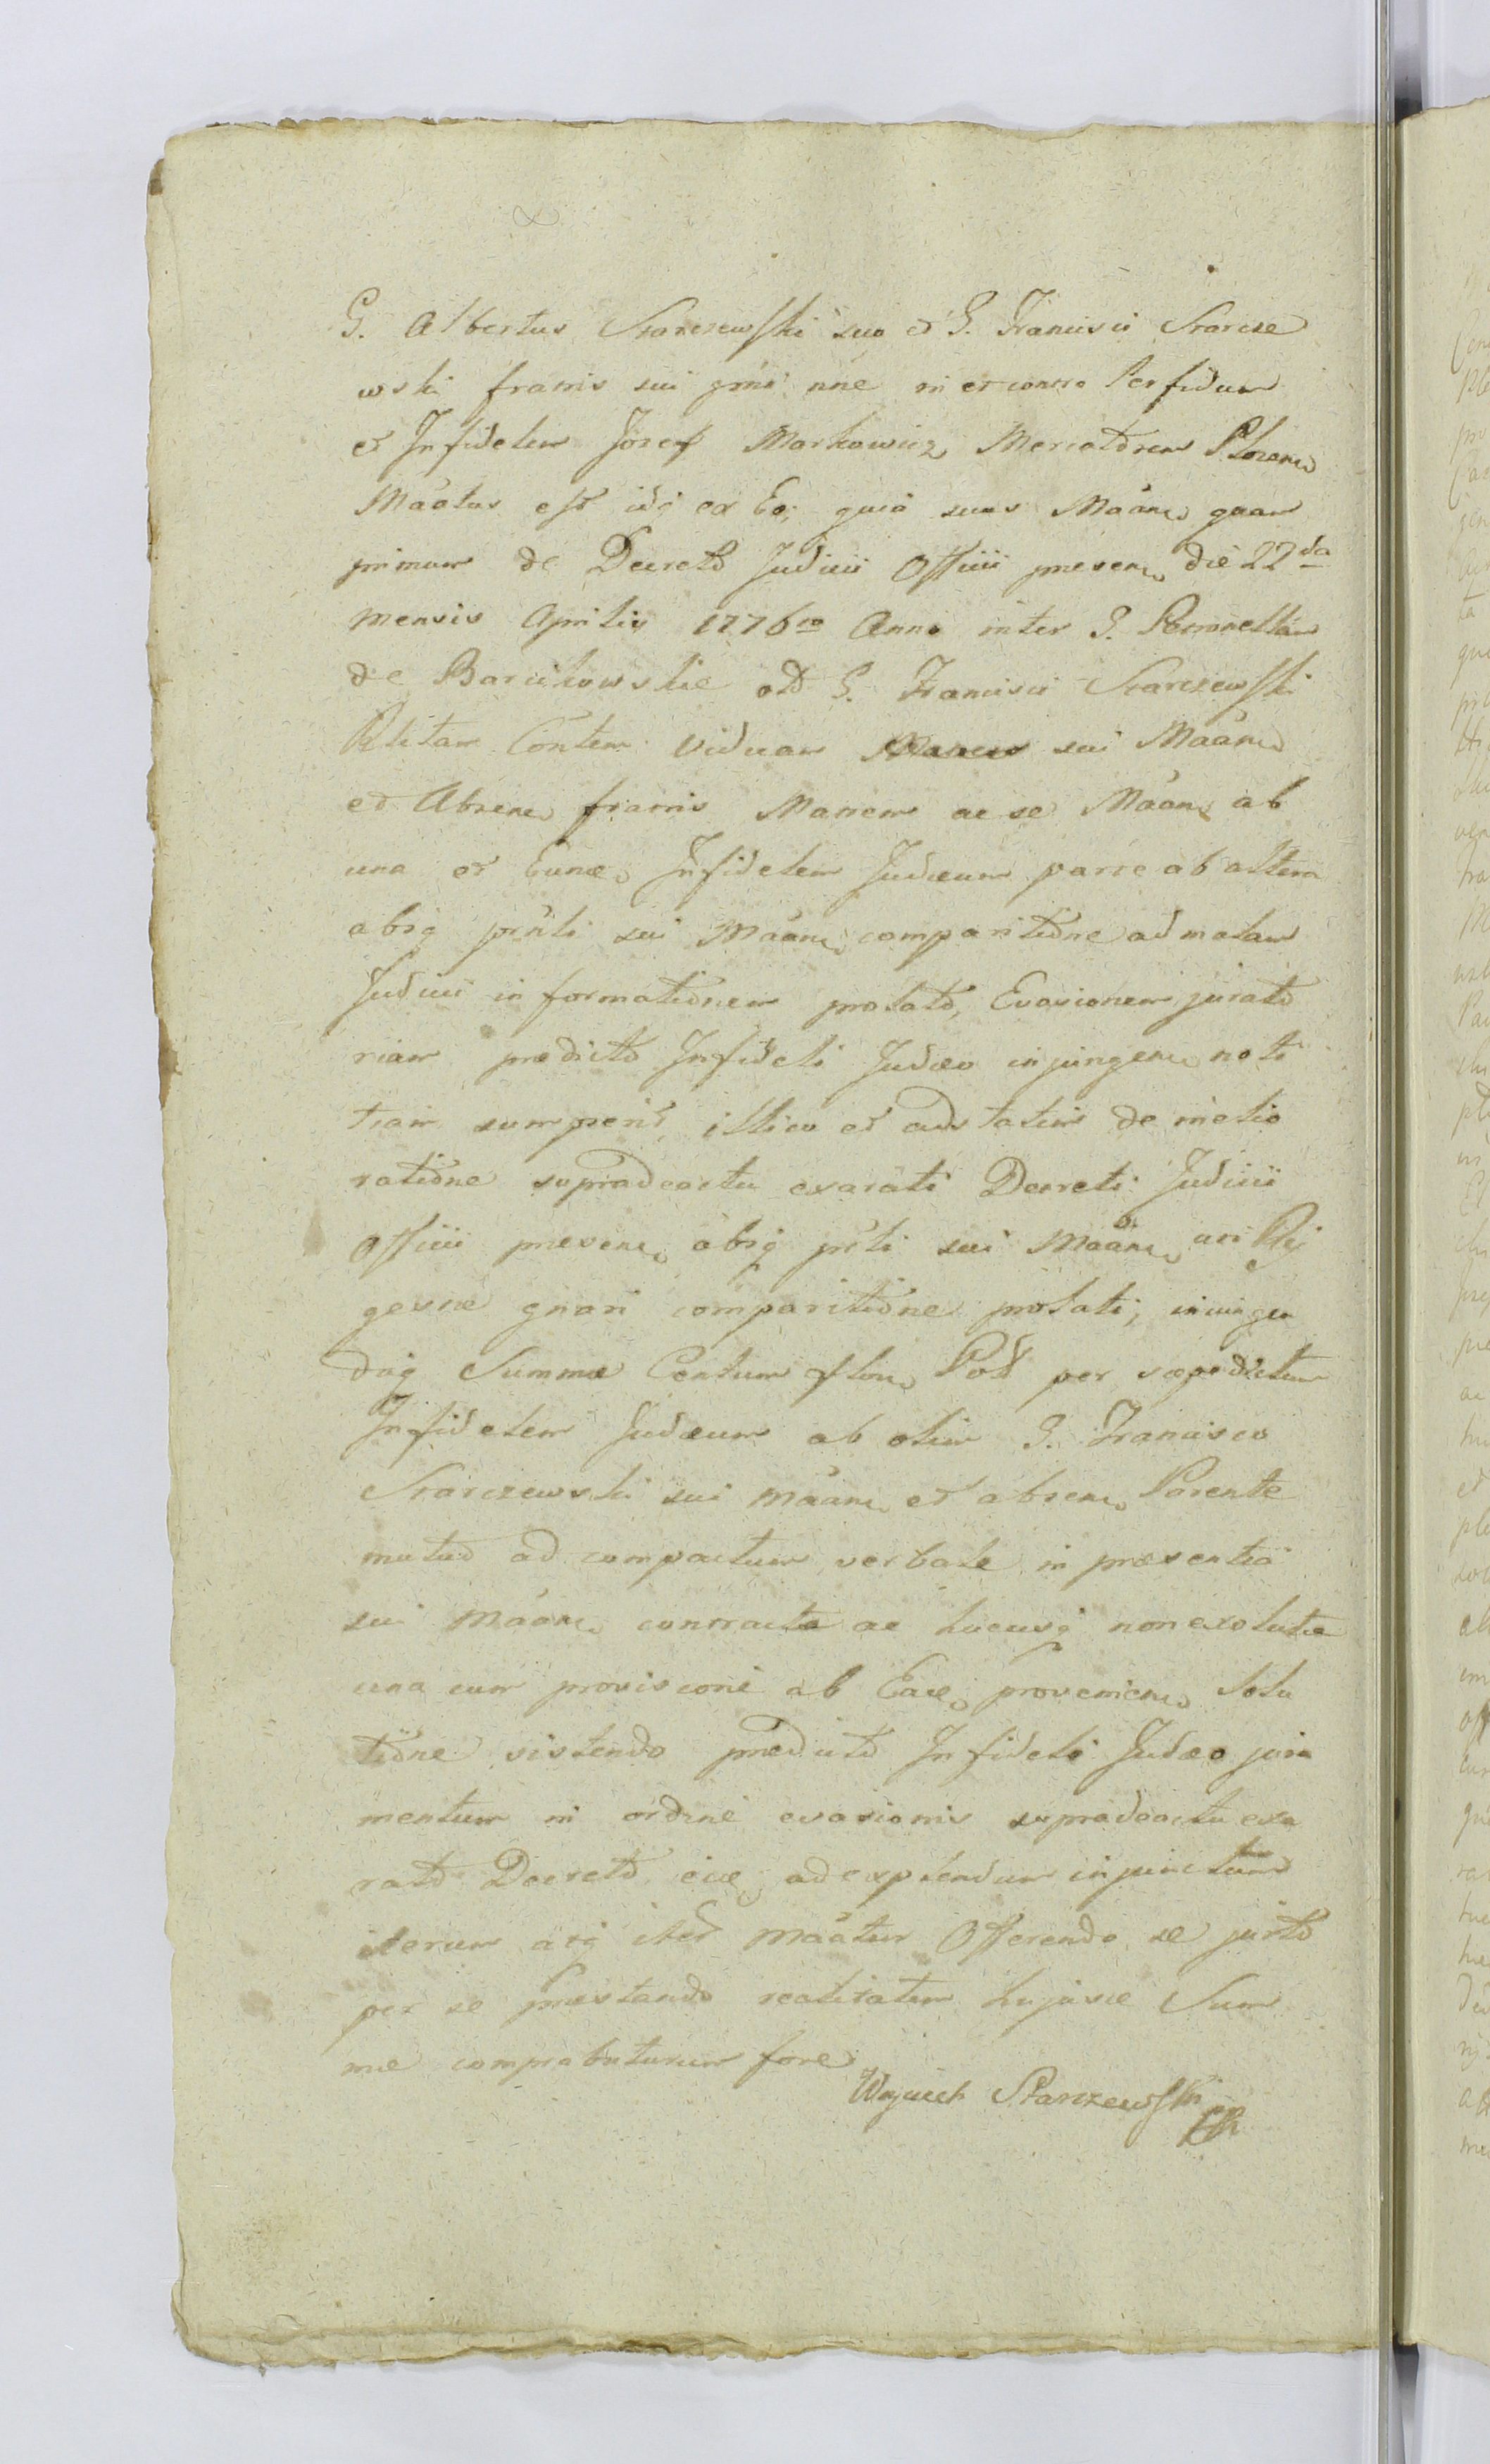 G. Albertus Starczewski suo et G. Francisci Starcze
wski fratris sui grñi nñe in et contra Perfidum
et Infidelem Jozef Markowicz Mercatorem Plocen
Mãatus est idq ex Eo; quia suus Mãan quam
primum de Decreto Judicii Officii presen die 22da
mensis Aprilis 1776to Anno inter G. Petronellam
de Barcikowskie olt G. Francisci Starczewski
Rlitam Cõntem viduam Matrem sui Mãan
et Absen fratris Matrem ac se Mãan ab
una et Eunde Infidelem Judæum parte ab altera
absq prñti sui Mãan comparitione ad malam
Judicii informationem prolato, Evasionem jurato
riam predicto Infideli Judæo injungen noti
tiam sumpsit, illico et ad statim de melio
ratione supradeactu exarati Decreti Judicii
Officii presen, absq prñti sui Mãan uti Rei
gestæ gnari comparitione prolati, iniungen
dæq Summæ Centum flon Pol per sæpedictum
Infidelem Judæum ab olim G. Francisco
Starczewski sui Mãan et absen Parente
mutuo ad compactum verbale in præsentia
sui Mãan contractæ ac hucusq non exolutæ
una cum provisione ab Eade provenien Solu
tione sistendo prædicto Infideli Judæo jura
mentum in ordine evasionis supradeactu exa
rato Decreto eide ad explendum injunctum
iterum atq iter mãatur Offerendo se jurto
per se præstando realitatem hujusce Sum
mæ comprobaturum fore
Woyciech Starczewski